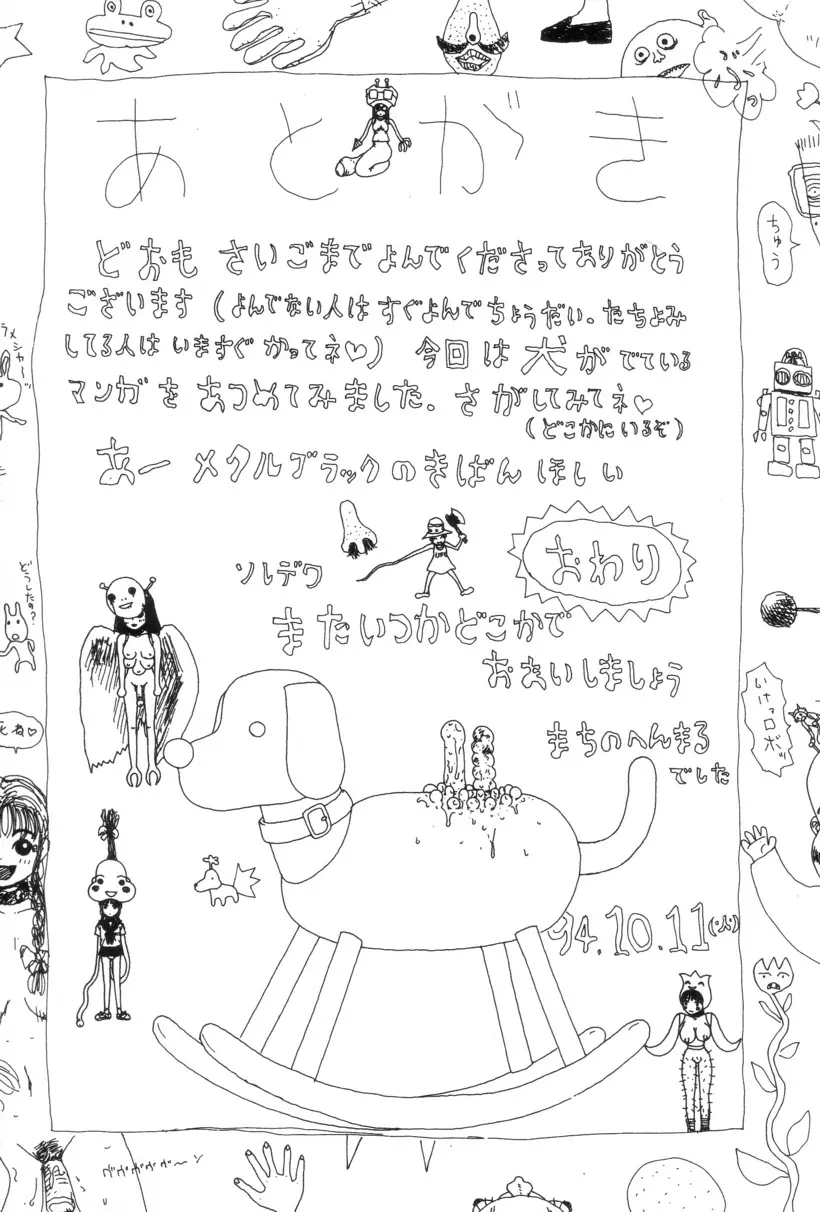 あとがき
どおも さいごまでよんでくださってありがとう
ございます(よんでない人は すぐよんでちょうだい.たちよみ
してる人は いますぐ かってネ♡) 今回は犬がでている
マンガを あつめてみました. さがしてみてネ♡
(どこかにいるぞ)
あー メタルブラックのきばん ほしい
おわり
ソレデワ
またいつかどこかで
おあいしましょう
まちのへんまる
でした
'94.10.11(火)
ちゅう
どうしたの?
死ね♡
いけっロボッ
ヴヴヴヴヴ〜ン